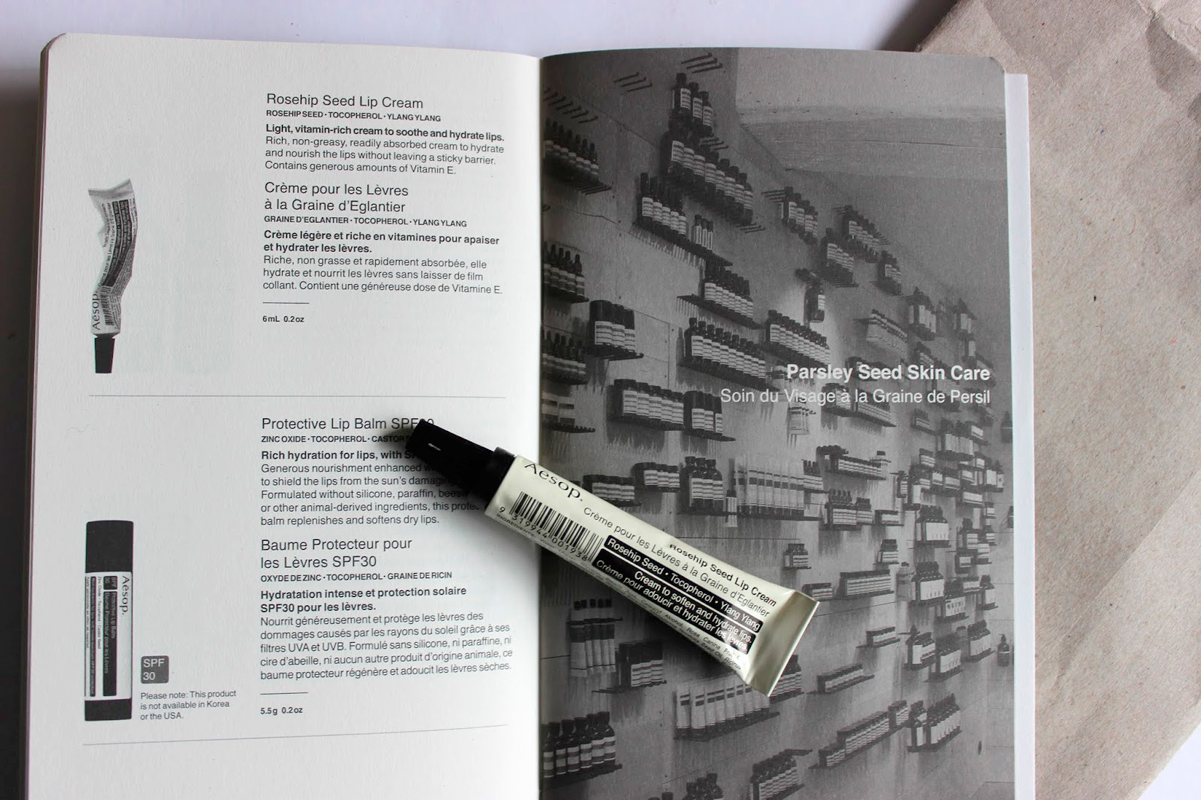 Rosehip Seed Lip Cream
ROSEHIP SEED • TOCOPHEROL • YLANG YLANG
Light, vitamin-rich cream to soothe and hydrate lips.
Rich, non-greasy, readily absorbed cream to hydrate
and nourish the lips without leaving a sticky barrier.
Contains generous amounts of Vitamin E.
Crème pour les Lèvres
à la Graine d'Eglantier
GRAINE D'EGLANTIER • TOCOPHEROL • YLANG YLANG
Crème légère et riche en vitamines pour apaiser
et hydrater les lèvres.
Riche, non grasse et rapidement absorbée, elle
hydrate et nourrit les lèvres sans laisser de film
collant. Contient une généreuse dose de Vitamine E.
6mL 0.2oz
Aesop.
Protective Lip Balm
ZINC OXIDE • TOCOPHEROL •
Rich hydration for lips, with
Generous nourishment enhanced
to shield the lips from the sun's
Formulated without silicone, paraffin,
or other animal-derived ingredients, this
balm replenishes and softens dry lips.
Baume Protecteur pour
les Lèvres SPF30
OXYDE DE ZINC • TOCOPHEROL • GRAINE DE RICIN
Hydratation intense et protection solaire
SPF30 pour les lèvres.
Nourrit généreusement et protège les lèvres des
dommages causés par les rayons du soleil grâce à ses
filtres UVA et UVB. Formulé sans silicone, ni paraffine, ni
cire d'abeille, ni aucun autre produit d'origine animale, ce
baume protecteur régénère et adoucit les lèvres sèches.
5.5g 0.2oz
Aesop.
SPF
30
Please note: This product
is not available in Korea
or the USA.
Parsley Seed Skin Care
Soin du Visage à la Graine de Persil
Aesop.
Rosehip Seed Lip Cream
Crème pour les Lèvres à la Graine d'Eglantier
Rosehip Seed • Tocopherol • Ylang Ylang
Cream to soften and hydrate lips.
Crème pour adoucir et hydrater les lèvres.